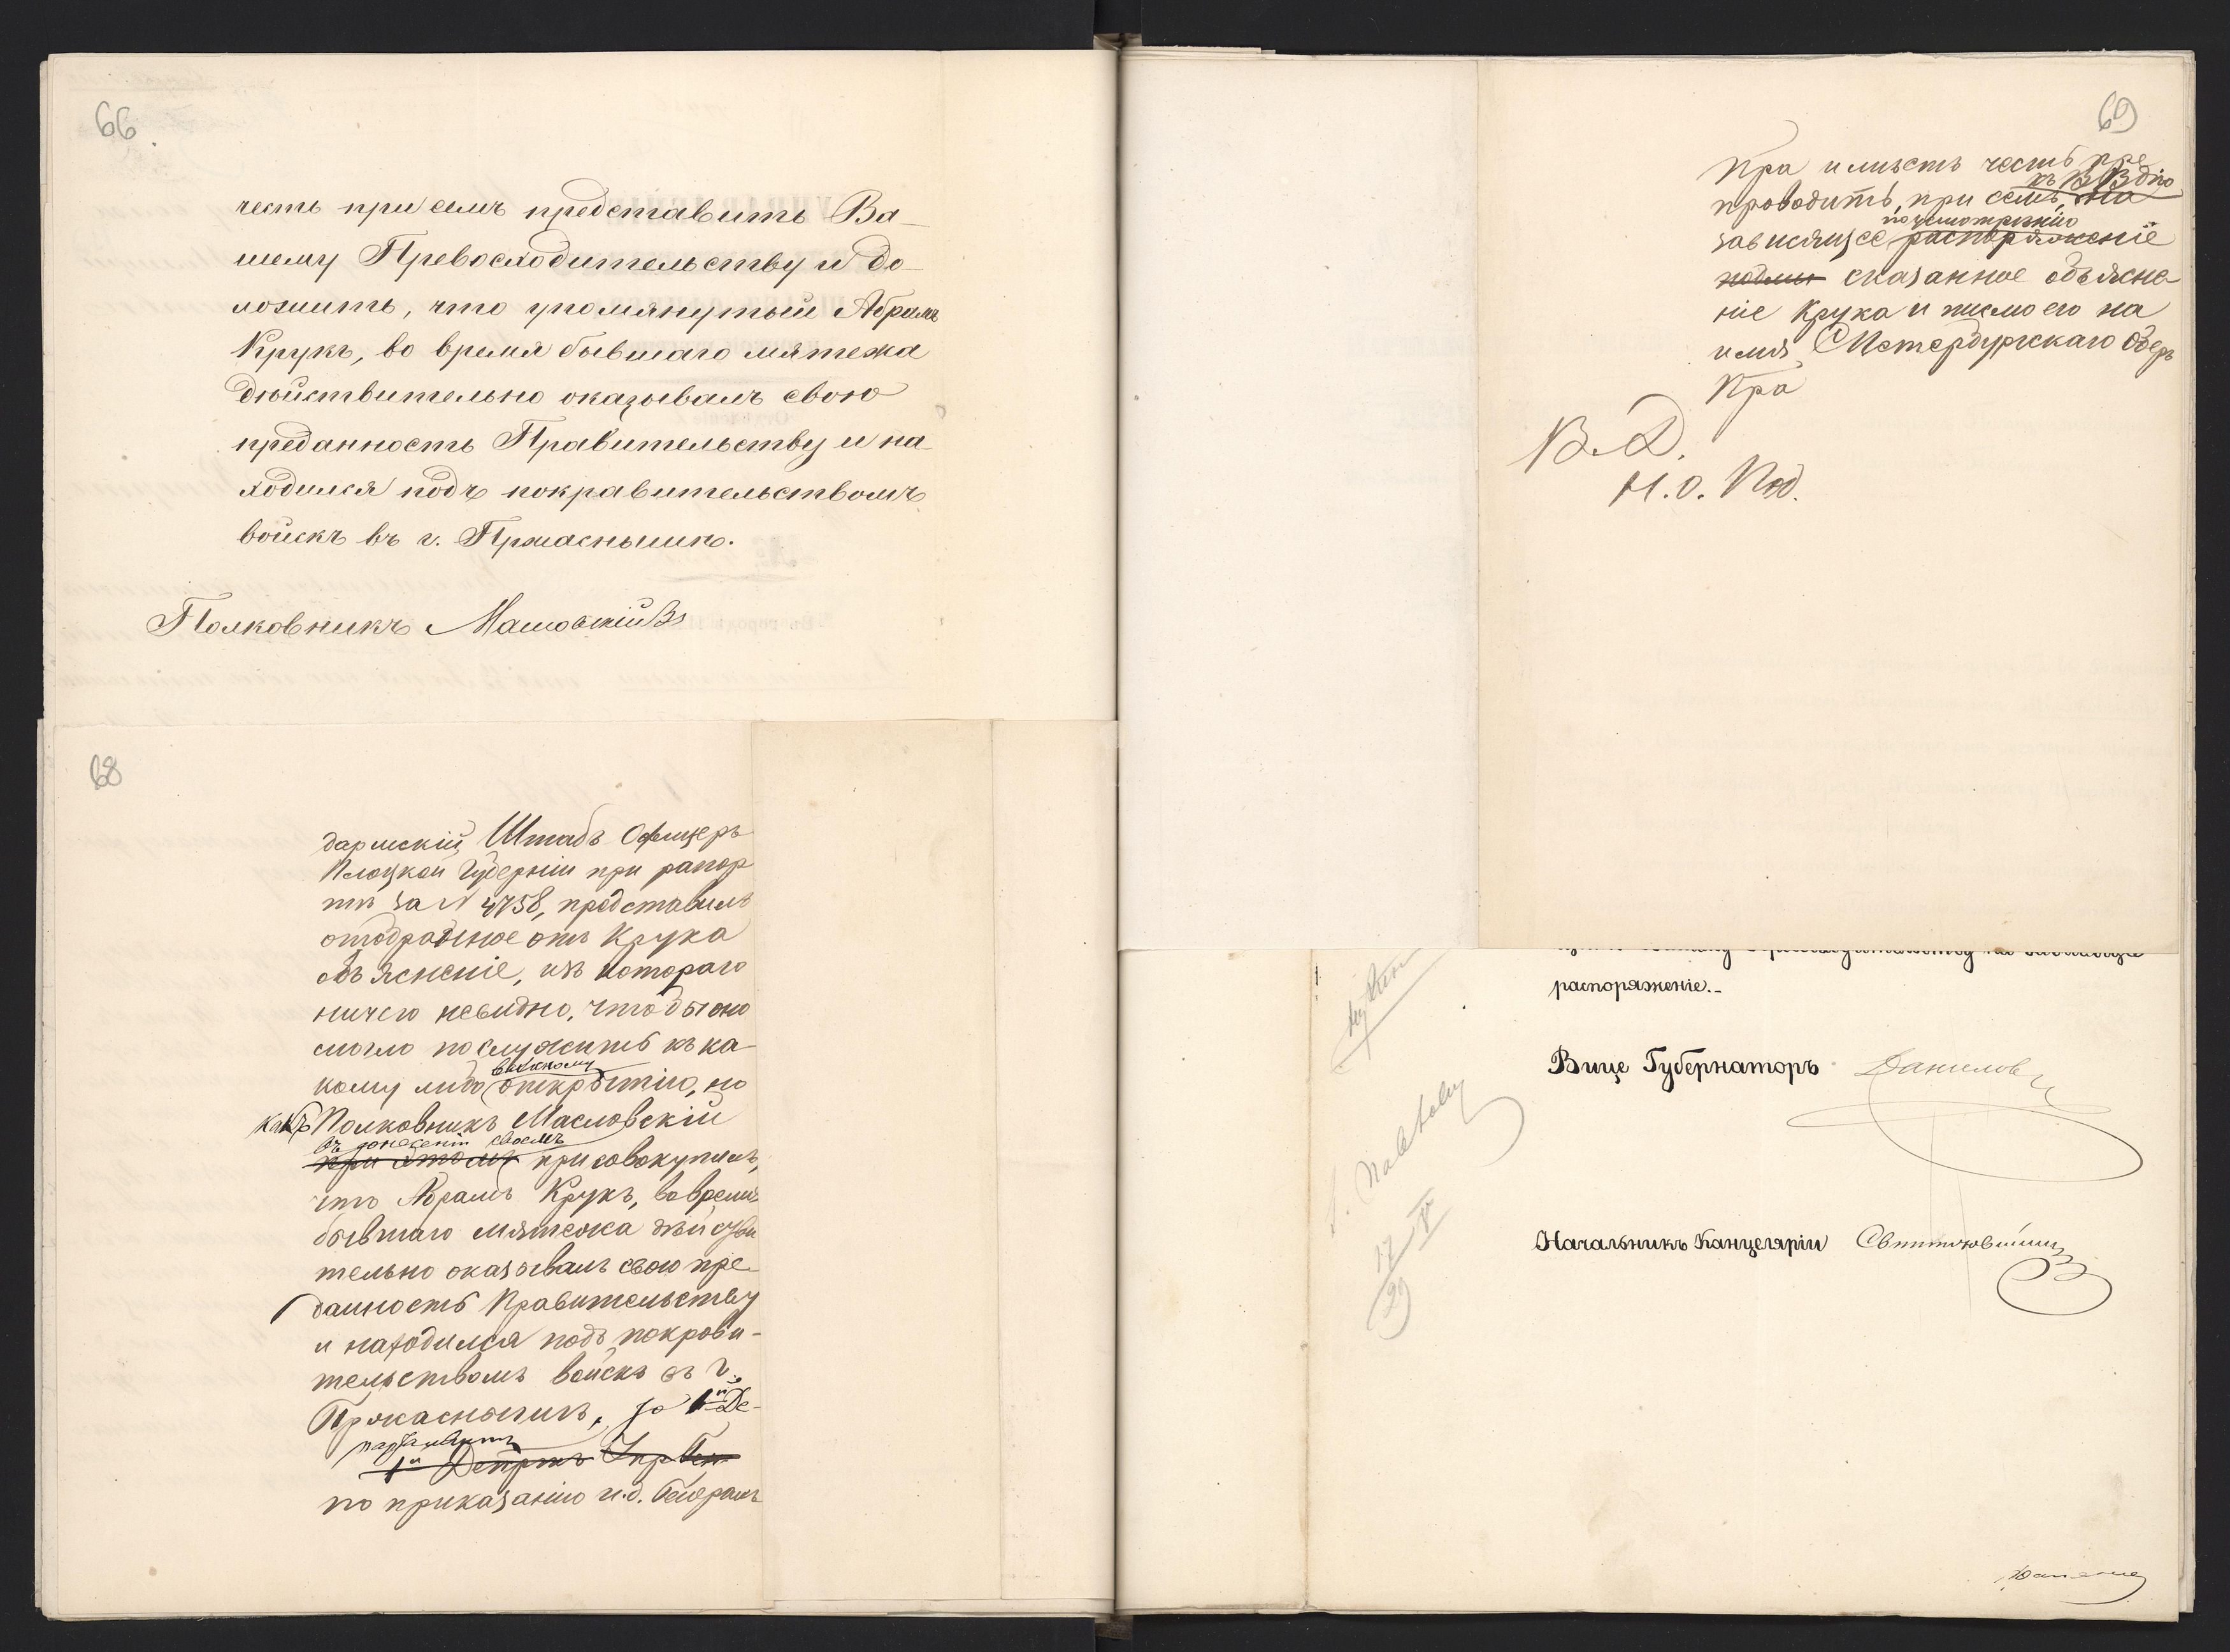 66
честь при семъ представить Ва-
шему Превосходительству и до-
ложить, что упомянутый Абрамъ
Крукъ, во время бывшаго мятежа
дѣйствительно оказывалъ свою
преданность Правительству и на-
ходился подъ покравительствомъ
войскъ въ г. Пржаснышѣ.
Полковникъ Масловскій
68
дармскій Штабъ Офицеръ
Плоцкой Губерніи при рапор
тѣ за N 4758, представилъ
отобранное отъ Крука
объясненіе, изъ котораго
ничего невидно, чтобы оно
могло послужить къ ка-
важному
кому либо открытію, но
какъ Полковникъ Масловскій
въ донесеніи своемъ
при этомъ присовокупилъ,
что Абрамъ Крукъ, во время
бывшаго мятежа дѣйстви
тельно оказывалъ свою пре-
данность Правительству
и находился подъ покрови-
тельствомъ войскъ въ г.
Пржаснышѣ, то 1й Де-
партаментъ
по приказанію и.д. Генералъ
69
Пра имѣетъ честь пре
къ В Вдію
проводить, при семъ, на
поусмотрѣнію
зависящее распоряженіе
сказанное объясне
ніе Крука и письмо его на
имя СПетербургскаго Оберъ
Пра
В. Д.
Н. О. Под.
распоряженіе.-
Вице Губернаторъ Даниловъ
Начальникъ Канцеляріи
17
29